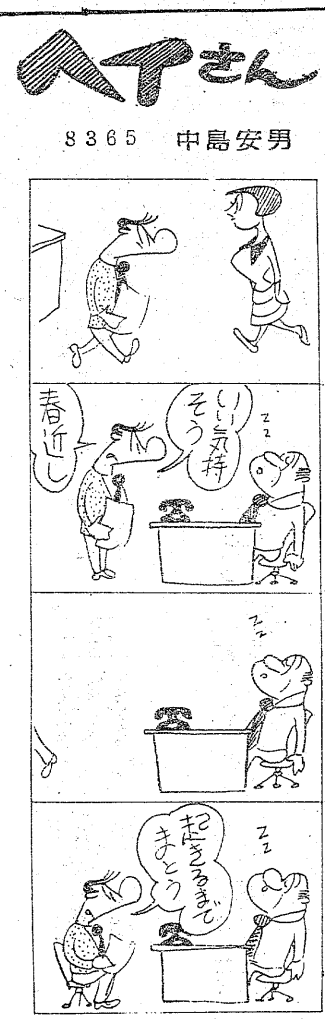 ヘイさん
8365 中島安男
いい気持
そう
春近し
z z
z z
起きるまで
まとう
z z